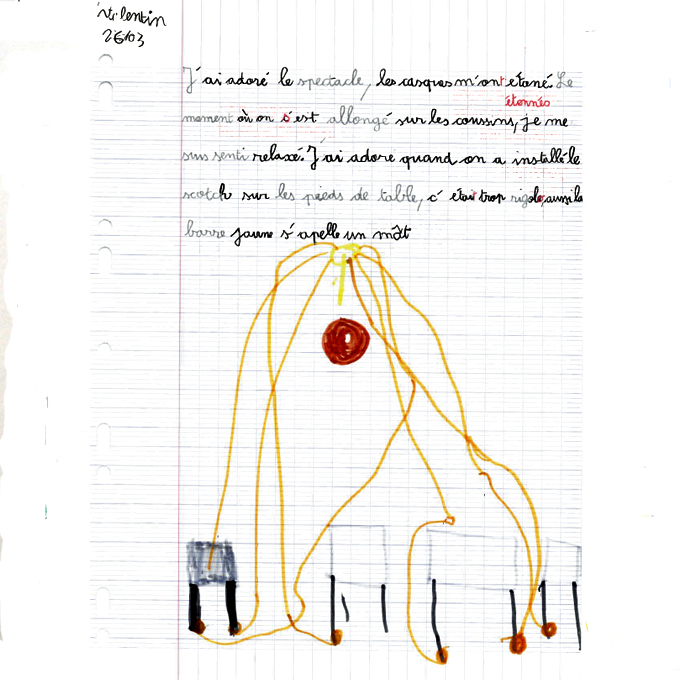 Valentin
26/03
J'ai adoré le spectacle, les casques m'ont étoné. Le
étonnés
moment où on s'est allongé sur les coussins, je me
suis senti relaxé. J'ai adore quand on a installé le
scotch sur les pieds de table, c'était trop rigolo, aussi la
barre jaune s'apelle un mât